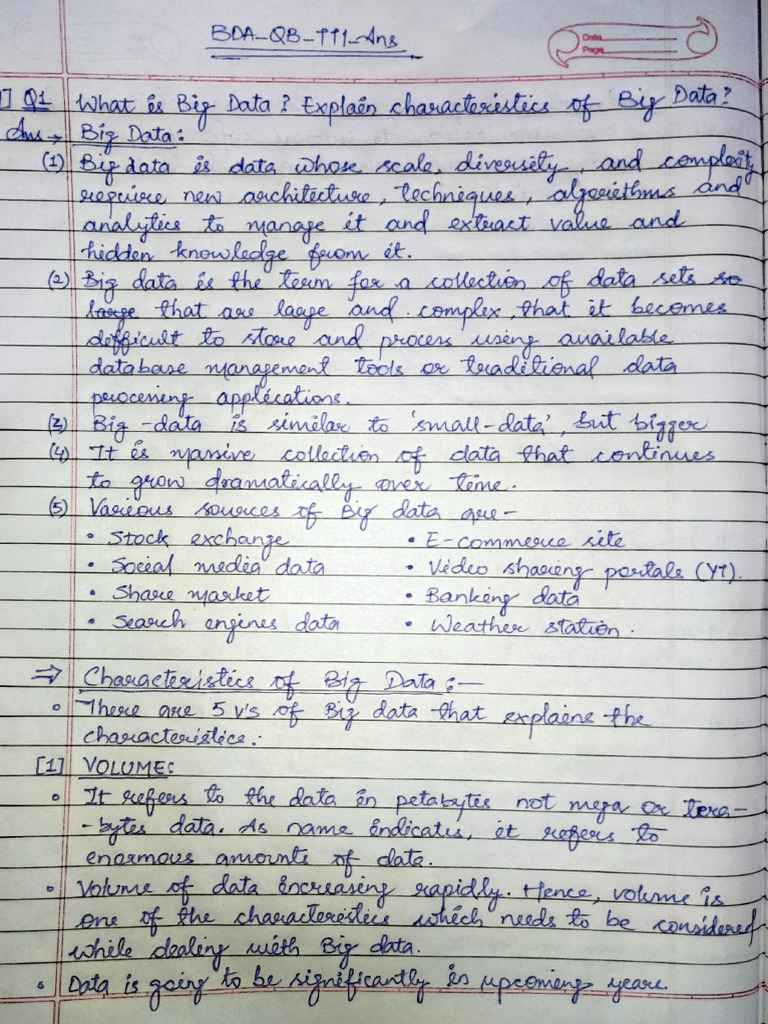 BDA_QB_TT1_Ans
Date
Page
1] Q1 What is Big Data? Explain characteristics of Big Data?
Ans → Big Data:
(1) Big data is data whose scale, diversity, and complexity
require new architecture, techniques, algorithms and
analytics to manage it and extract value and
hidden knowledge from it.
(2) Big data is the term for a collection of data sets so
large that are large and complex, that it becomes
difficult to store and process using available
database management tools or traditional data
processing applications.
(3) Big-data is similar to 'small-data', but bigger
(4) It is massive collection of data that continues
to grow dramatically over time.
(5) Various sources of Big data are-
• Stock exchange • E-commerce site
• Social media data • Video sharing portals (YT).
• Share market • Banking data
• Search engines data • Weather station.
⇒ Characteristics of Big Data:—
∘ There are 5 V's of Big data that explains the
characteristics:
[1] VOLUME:
∘ It refers to the data in petabytes not mega or tera-
-bytes data. As name indicates, it refers to
enormous amounts of data.
∘ Volume of data increasing rapidly. Hence, volume is
one of the characteristics which needs to be considered
while dealing with Big data.
∘ Data is going to be significantly in upcoming years.